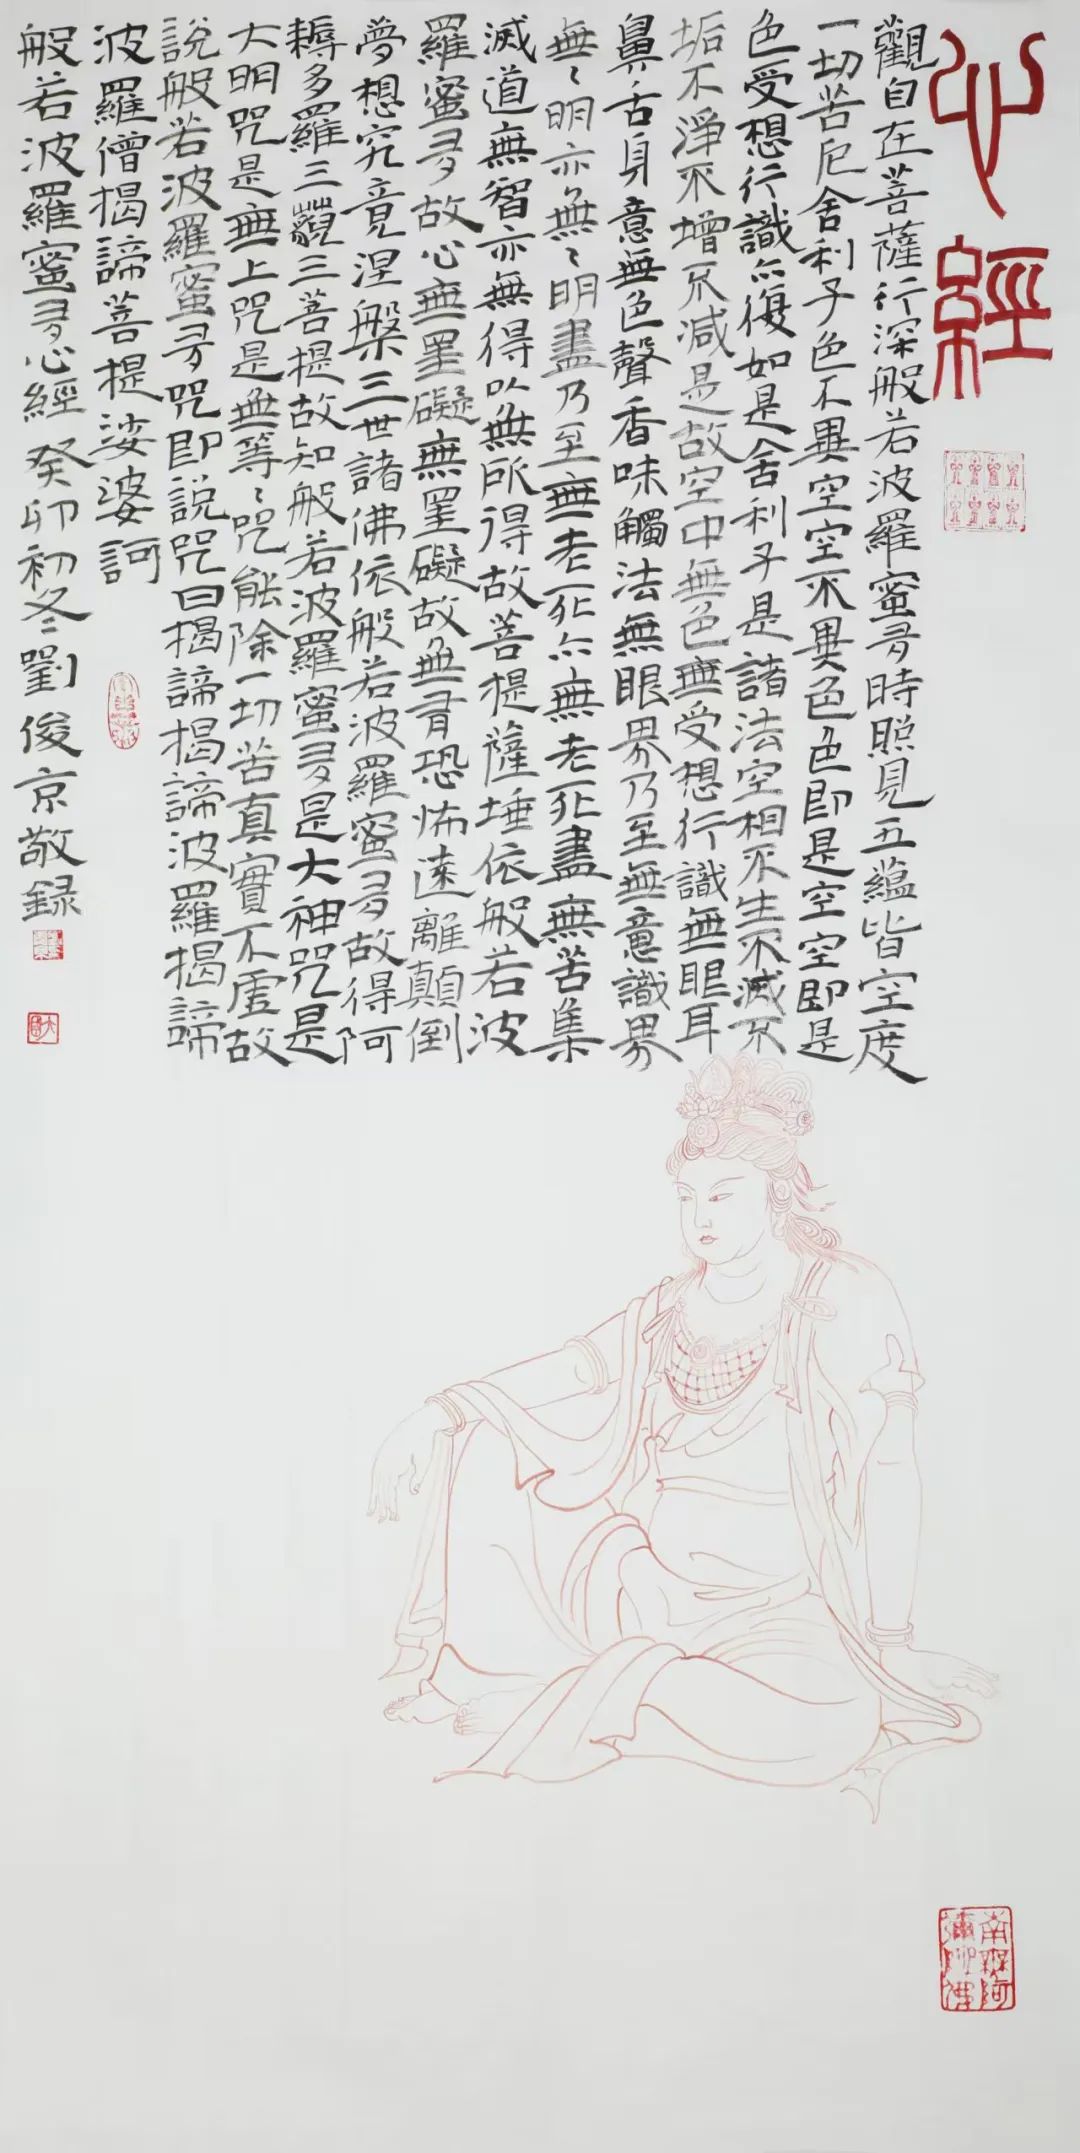 心經
觀自在菩薩行深般若波羅蜜多時照見五蘊皆空度
一切苦厄舍利子色不異空空不異色色即是空空即是
色受想行識亦復如是舍利子是諸法空相不生不滅不
垢不淨不增不減是故空中無色無受想行識無眼耳
鼻舌身意無色聲香味觸法無眼界乃至無意識界
無〻明亦無〻明盡乃至無老死亦無老死盡無苦集
滅道無智亦無得以無所得故菩提薩埵依般若波
羅蜜多故心無罣礙無罣礙故無有恐怖遠離顛倒
夢想究竟涅槃三世諸佛依般若波羅蜜多故得阿
耨多羅三藐三菩提故知般若波羅蜜多是大神咒是
大明咒是無上咒是無等〻咒能除一切苦真實不虛故
說般若波羅蜜多咒即說咒曰揭諦揭諦波羅揭諦
波羅僧揭諦菩提娑婆訶
般若波羅蜜多心經 癸卯初冬劉俊京敬録
南無阿
彌陀佛